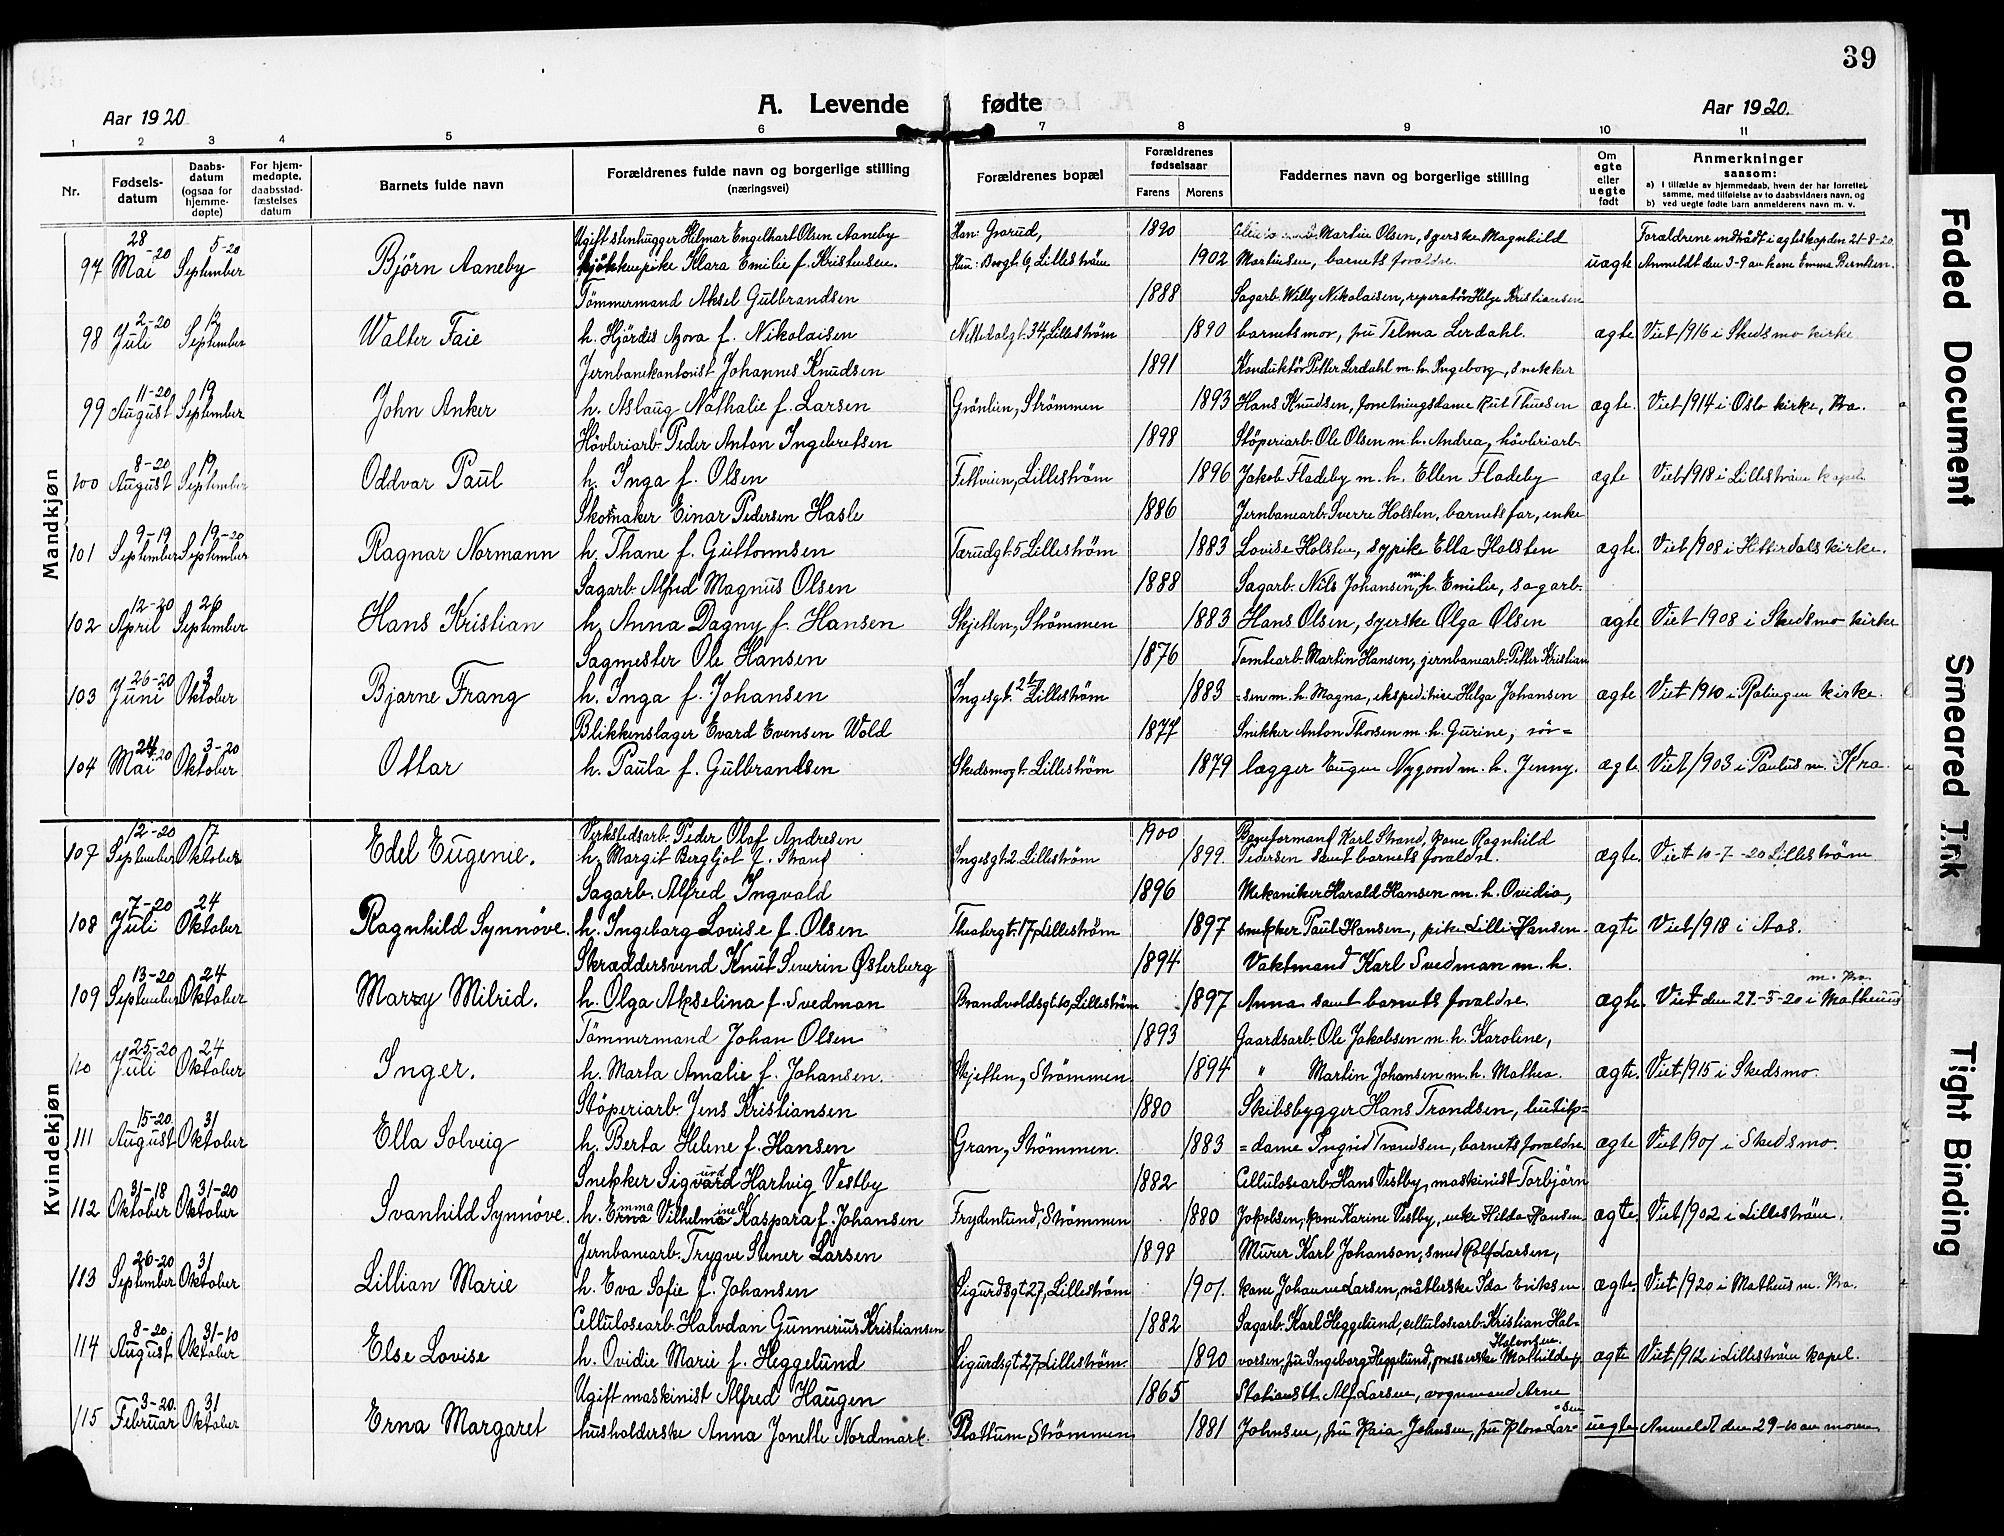 39
A. Levende fødte
Aar 1920
Aar 1920.
1 2 3 4 5 6 7 8 9 10 11
Nr.
Fødsels-
datum
Daabs-
datum
(ogsaa for
hjemme-
døpte)
For hjem-
medøpte,
daabsstad-
fæstelses
datum
Barnets fulde navn
Forældrenes fulde navn og borgerlige stilling
(næringsvei)
Forældrenes bopæl
Forældrenes
fødselsaar
Farens Morens
Faddernes navn og borgerlige stilling
Om
egte
eller
uegte
født
Anmerkninger
saasom:
a) I tilfælde av hjemmedaab, hvem der har forrettet
samme, med tilføielse av to daabsvidners navn, og
b) ved uegte fødte barn anmelderens navn m. v.
Mandkjøn
28 5-20 Ugift stenhugger Hilmar Engelhart Olsen Aaneby Han: Grorud, 1890 Martin Olsen, syerske Magnhild Foraldrene indtrådt i egteskap den 21-8-20
97 Mai -20 September Bjørn Aaneby kjøkkenpike Klara Emilie f. Kristensen. Hun: Borgt. 6, Lillestrøm 1902 Martinsen, barnets foraldre. uægte Anmeldt den 3-9 av kone Emma Berntsen.
2-20 12 Tømmermand Aksel Gulbrandsen 1888 Sagarb. Willy Nikolaisen, reperatør Helge Kristiansen
98 Juli September Walter Faie h. Hjördis Azora f. Nikolaisen Nittedalgt. 34, Lillestrøm 1890 barnets mor, fru Telma Lerdahl. ægte Viet 1916 i Skedsmo kirke
11-20 19 Jernbanekontorist Johannes Knudsen 1891 Konduktør Petter Lerdahl m. h. Ingeborg, snekker
99 August September John Anker h. Aslaug Nathalie f. Larsen Grønlien, Strømmen 1893 Hans Knudsen, forretningsdame Rut Thuesen ægte. Viet 1914 i Oslo kirke, Kra.
8-20 19 Høvleriarb. Peder Anton Ingebretsen 1898 Støperiarb. Ole Olsen m. h. Andrea, høvleriarb.
100 August September Oddvar Paul h. Inga f. Olsen Fetveien, Lillestrøm 1896 Jakob Fladeby m. h. Ellen Fladeby ægte Viet 1918 i Lillestrøm kapel
9-19 19-20 Skomaker Einar Pedersen Hasle 1886 Jernbanearb. Sverre Holsten, barnets far, enke
101 September September Ragnar Normann h. Thane f. Guttormsen Tærudgt. 5 Lillestrøm 1883 Lovise Holsten, sypike Ella Holsten ægte. Viet 1908 i Hitterdals kirke.
12-20 26 Sagarb. Alfred Magnus Olsen 1888 Sagarb. Nils Johansen m. h. Emilie, sagarb.
102 April September Hans Kristian h. Anna Dagny f. Hansen Skjetten, Strømmen 1883 Hans Olsen, syerske Olga Olsen ægte Viet 1908 i Skedsmo kirke
26-20 3 Sagmester Ole Hansen 1876 Tomtearb. Martin Hansen, jernbanearb. Petter Kristian
103 Juni Oktober Bjarne Frang h. Inga f. Johansen Ingesgt. 2 b Lillestrøm 1883 =sen m. h. Magna, ekspeditrice Helga Johansen ægte Viet 1910 i Rælingen kirke.
24 3-20 Blikkenslager Evard Evensen Wold 1877 Snekker Anton Thorsen m. h. Gurine, rør=
104 Mai 20 Oktober Ottar h. Paula f. Gulbrandsen Skedsmogt. Lillestrøm 1879 lægger Eugen Nygaard m. h. Jenny. ægte Viet 1903 i Paulus m. Kra.
Kvindekjøn
12-20 17 Verkstedsarb. Peder Olaf Andresen 1900 Baneformand Karl Strand, kone Ragnhild
107 September Oktober Edel Eugenie. h. Margit Bergljot f. Strand Ingesgt 2 Lillestrøm 1899. Pedersen samt barnets foraldre. ægte. Viet 10-7-20 Lillestrøm
7-20 24 Sagarb. Alfred Ingvald 1896 Mekaniker Harald Hansen m. h. Ovidia,
108 Juli Oktober Ragnhild Synnöve. h. Ingeborg Lovise f. Olsen Theatergt. 17, Lillestrøm 1897 snekker Paul Hansen, pike Lilli Hansen. ægte Viet 1918 i Aas.
13-20 24 Skræddersvend Knut Severin Østerberg 1894 Vaktmand Karl Svedman m. h. m. Kra.
109 September Oktober Marzy Milrid. h. Olga Akselina f. Svedman Brandvoldsgt. 10, Lillestrøm 1897 Anna samt barnets foraldre. ægte. Viet den 27.-5-20 i Matheus
25-20 24 Tømmermand Johan Olsen 1893 Gaardsarb. Ole Jakobsen m. h. Karoline,
110 Juli Oktober Inger. h. Marta Amalie f. Johansen. Skjetten, Strømmen 1894 " Martin Johansen m. h. Mathea. ægte. Viet 1915 i Skedsmo.
15-20. 31 Støperiarb. Jens Kristiansen 1880 Skibsbygger Hans Trondsen, butik=
111 August Oktober Ella Solveig h. Berta Helene f. Hansen Gran, Strømmen. 1883 =dame Ingrid Trondsen, barnets foraldre ægte Viet 1907 i Skedsmo.
31-18 31-20 Snekker Sigvard urd Hartvig Vestby 1882 Cellulosearb. Hans Vestby, maskinist Torbjørn
112 Oktober Oktober Svanhild Synnöve. h. Erna mma Vilhelma ine Kaspara f. Johansen Frydenlund, Strømmen 1880 Jakobsen, kone Karine Vestby, enke Hilda Hansen ægte. Viet 1902 i Lillestrøm.
26-20 31 Jernbanearb. Trygve Stener Larsen 1898 Murer Karl Johanson, smed Rolf Larsen,
113 September Oktober Lillian Marie h. Eva Sofie f. Johansen Sigurdsgt 27, Lillestrøm 1901. kone Johanne Larsen, nåtlerske Ida Eriksen ægte. Viet 1920 i Matheus m. Kra.
8-20. 31-10 Cellulosearb. Halvdan Gunnerius Kristiansen 1882 Sagarb. Karl Heggelund, cellulosearb. Kristian Hal-
114 August Oktober Else Lovise h. Ovidie Marie f. Heggelund Sigurdsgt 27, Lillestrøm. 1890 vorsen, fru Ingeborg Heggelund, presserske Mathilde Halvorsen. ægte Viet 1912 i Lillestrøm kapel.
3-20. 31 Ugift maskinist Alfred Haugen 1865 Stationsbt. Alf Larsen, vognmand Arne
115 Februar Oktober Erna Margaret husholderske Anna Jonette Nordmark. Platsum, Strømmen 1881 Johnsen, fru Kaia Johnsen, fru Klara Lar- =sen uægte Anmeldt den 29-10 av moren
Faded Document
Smeared Ink
Tight Binding